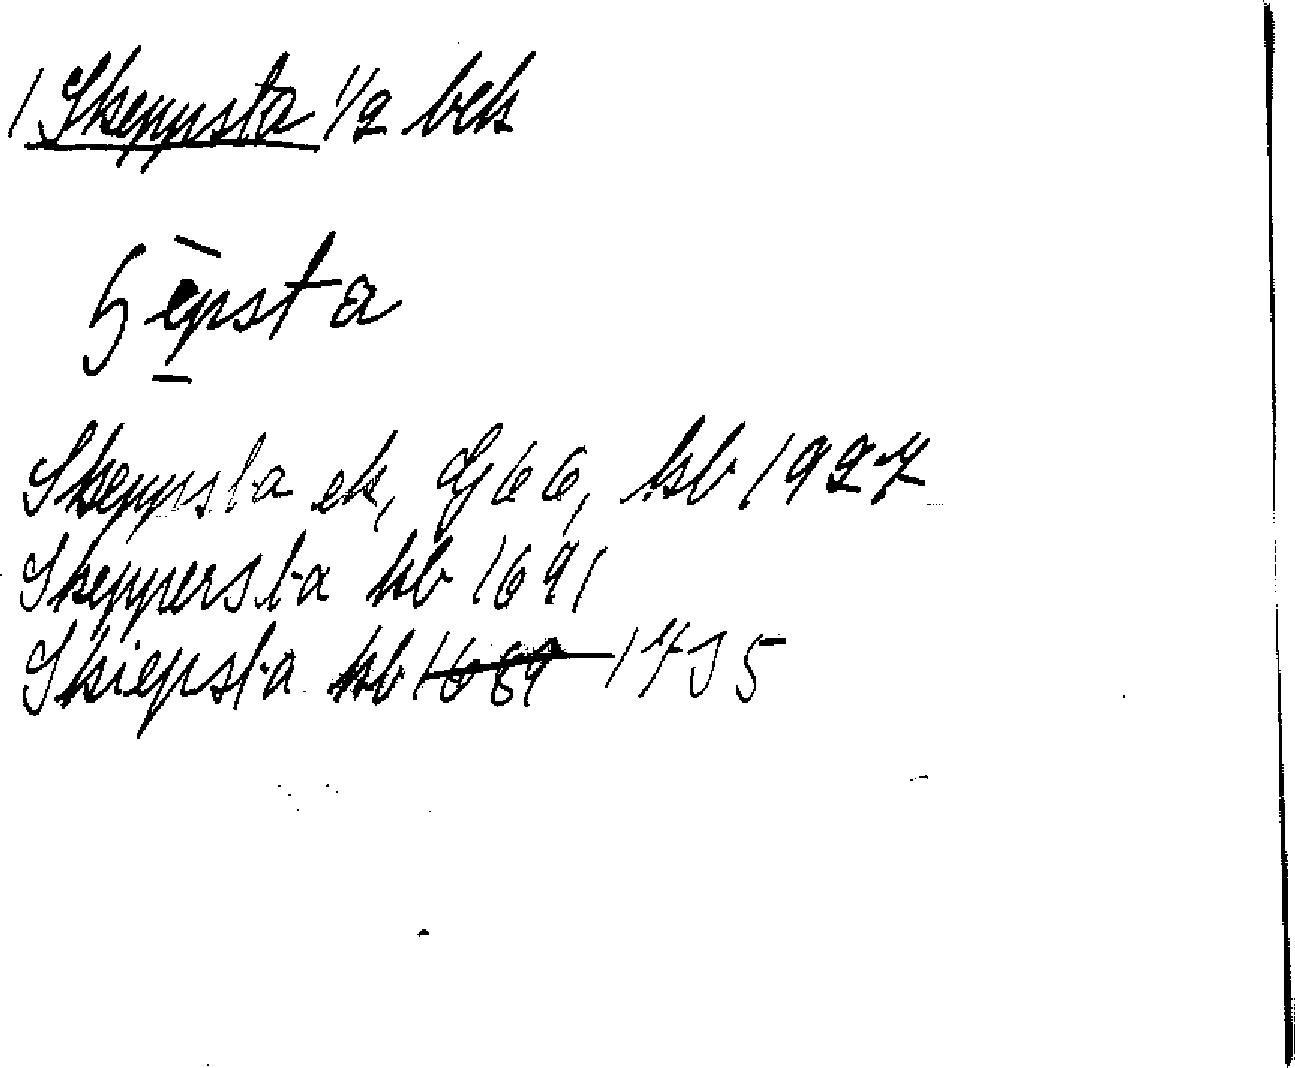 1 Skeppsta 1/2 bek
ʃè̱psta
Skeppsta ek, Gj 66, kb 1927
Skeppersta kb 1691
Skiepsta kb 1689 1735